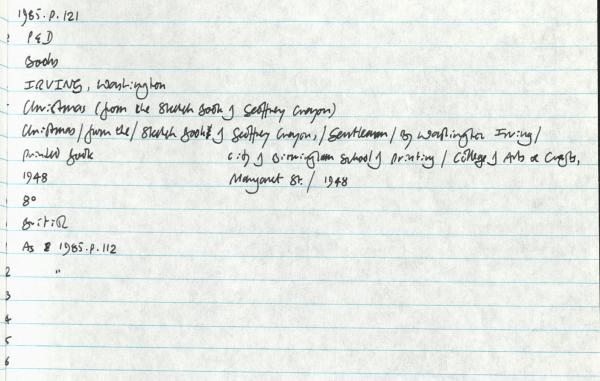 1985.P.121
P&D
Books
IRVING, Washington
Christmas (from the Sketch Book of Geoffrey Crayon)
Christmas / from the / Sketch Book of Geoffrey Crayon, / Gentleman / By Washington Irving /
Printed book City of Birmingham School of Printing / College of Arts & Crafts,
1948 Margaret St. / 1948
8°
British
As 1985.P.112
2 "
3
4
5
6